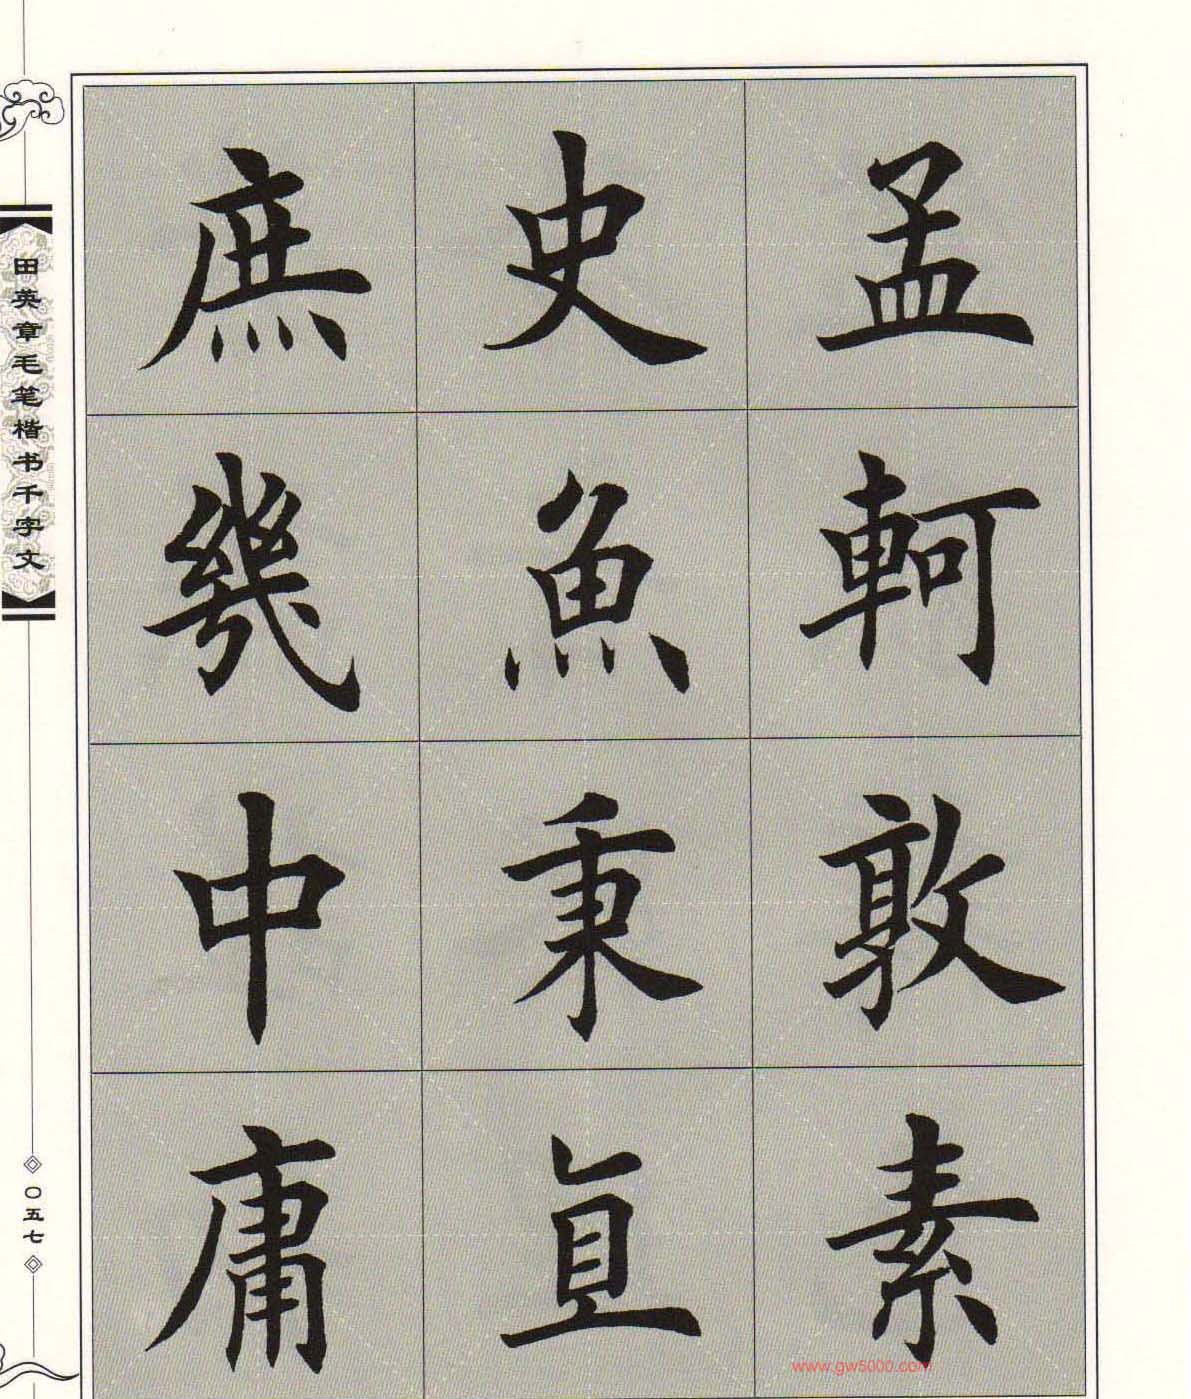 孟軻敦素
史魚秉直
庶幾中庸
田英章毛笔楷书千字文
〇五七
www.gw5000.com